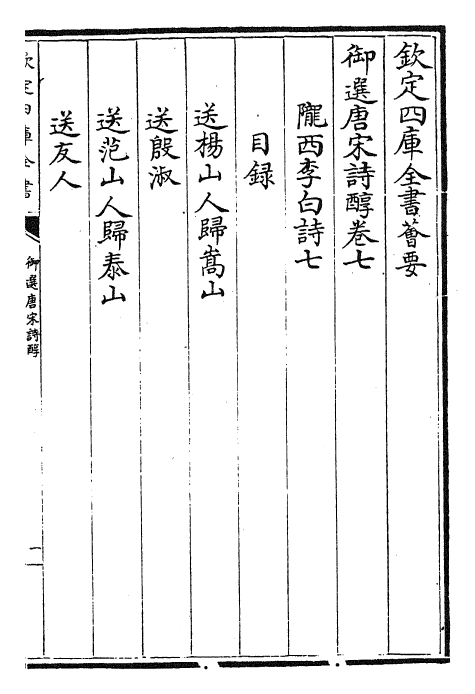 欽定四庫全書薈要
御選唐宋詩醇卷七
隴西李白詩七
目録
送楊山人歸嵩山
送殷淑
送范山人歸泰山
送友人
欽定四庫全書
御選唐宋詩醇
一